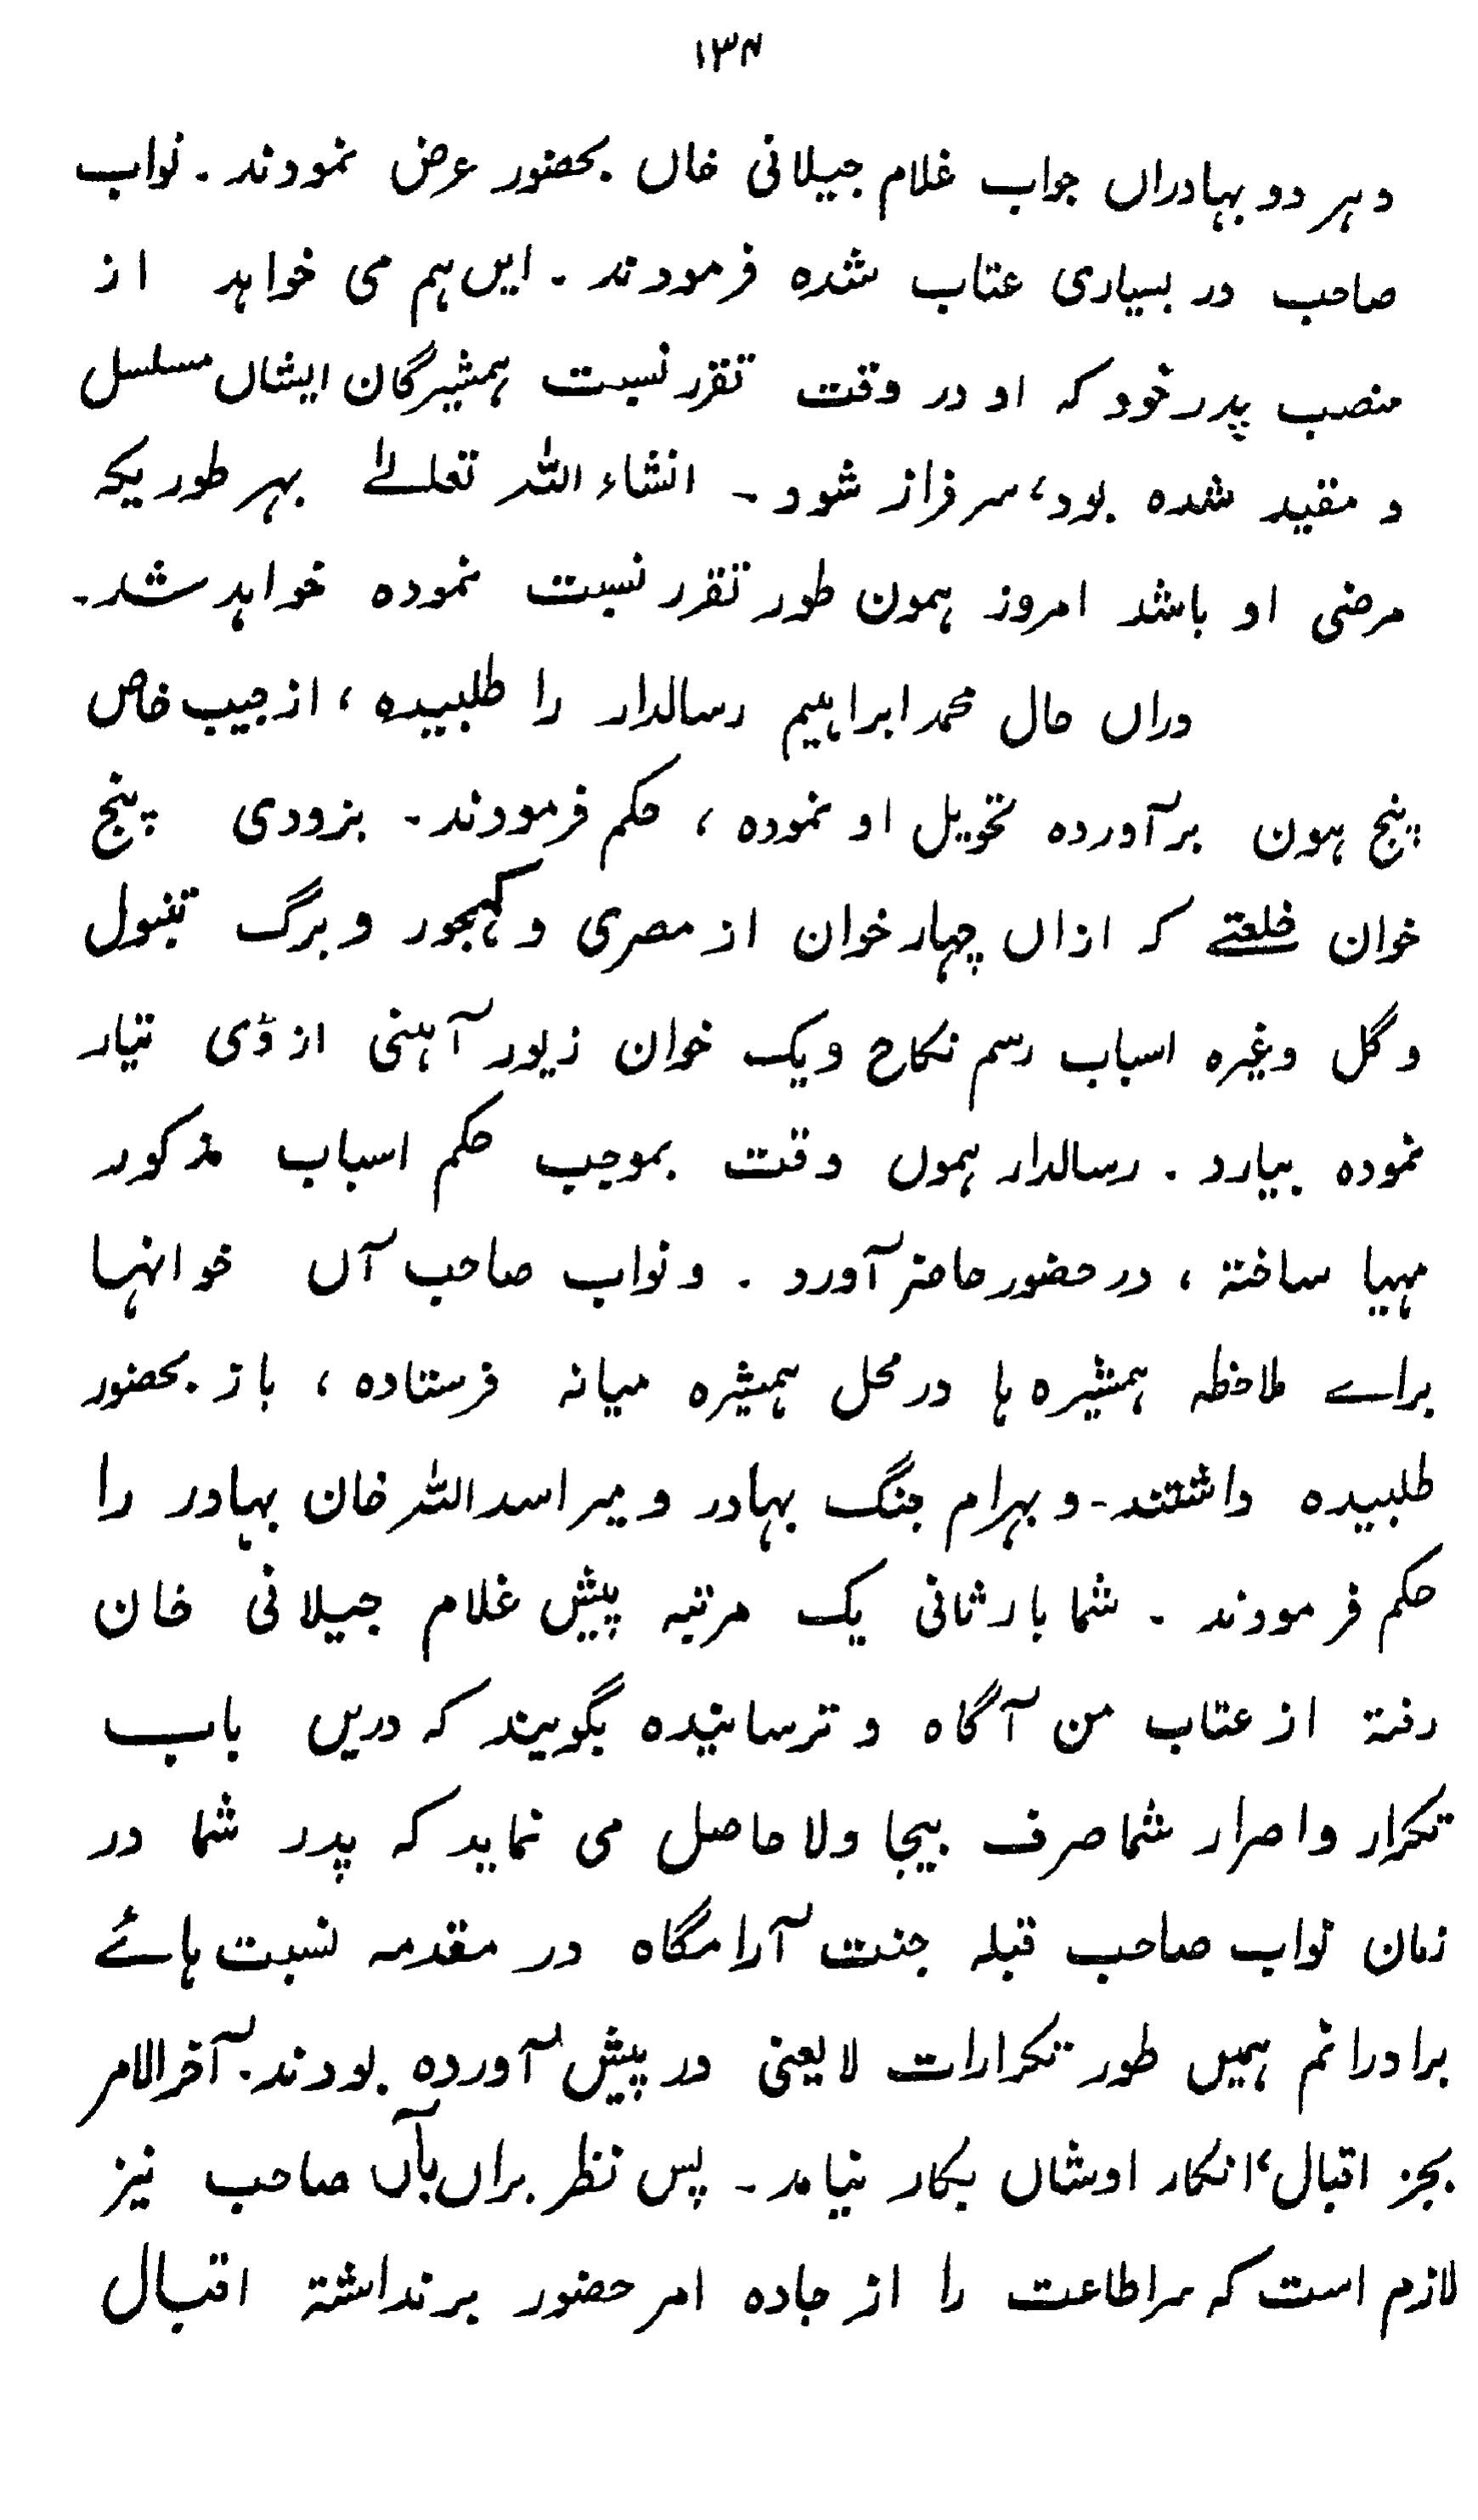 ۱۳۴
و ہر دو بہادراں جواب غلام جیلانی خاں بحضور عرض نمودند۔ نواب
صاحب در بسیاری عتاب شدہ فرمودند۔ ایں ہم می خواہد از
منصب پدر خود کہ او در وقت تقرر نسبت ہمشیرگان ایشاں مسلسل
و مقید شدہ بود، سرفراز شود۔ انشاء اللہ تعلےٰ بہر طوریکہ
مرضی او باشد امروز ہمون طور تقرر نسبت نمودہ خواہد شد۔
دراں حال محمد ابراہیم رسالدار را طلبیدہ، از جیب خاص
پنج ہون برآوردہ تحویل او نمودہ، حکم فرمودند۔ بزودی پنج
خوان خلعتے کہ ازاں چہار خوان از مصری و کھجور و برگ تنبول
و گل وغیرہ اسباب رسم نکاح و یک خوان زیور آہنی از ڈی تیار
نمودہ بیارد۔ رسالدار ہموں وقت بموجب حکم اسباب مذکور
مہیا ساختہ، در حضور حاضر آورد۔ و نواب صاحب آں خوانہا
براے ملاحظہ ہمشیرہ ہا در محل ہمشیرہ میانہ فرستادہ، باز بحضور
طلبیدہ داشتند۔ و بہرام جنگ بہادر و میر اسد اللہ خان بہادر را
حکم فرمودند۔ شما بار ثانی یک مرتبہ پیش غلام جیلانی خان
رفتہ از عتاب من آگاہ و ترسانیدہ بگویند کہ دریں باب
تکرار و اصرار شما صرف بیجا ولا حاصل می نماید کہ پدر شما در
زمان نواب صاحب قبلہ جنت آرامگاہ در مقدمہ نسبت ہائے
برادرانم ہمیں طور تکرارات لایعنی در پیش آوردہ بودند۔ آخر الامر
بجز اقبال، انکار اوشاں بکار نیامد۔ پس نظر براں بآں صاحب نیز
لازم است کہ سر اطاعت را از جادہ امر حضور برنداشتہ اقبال